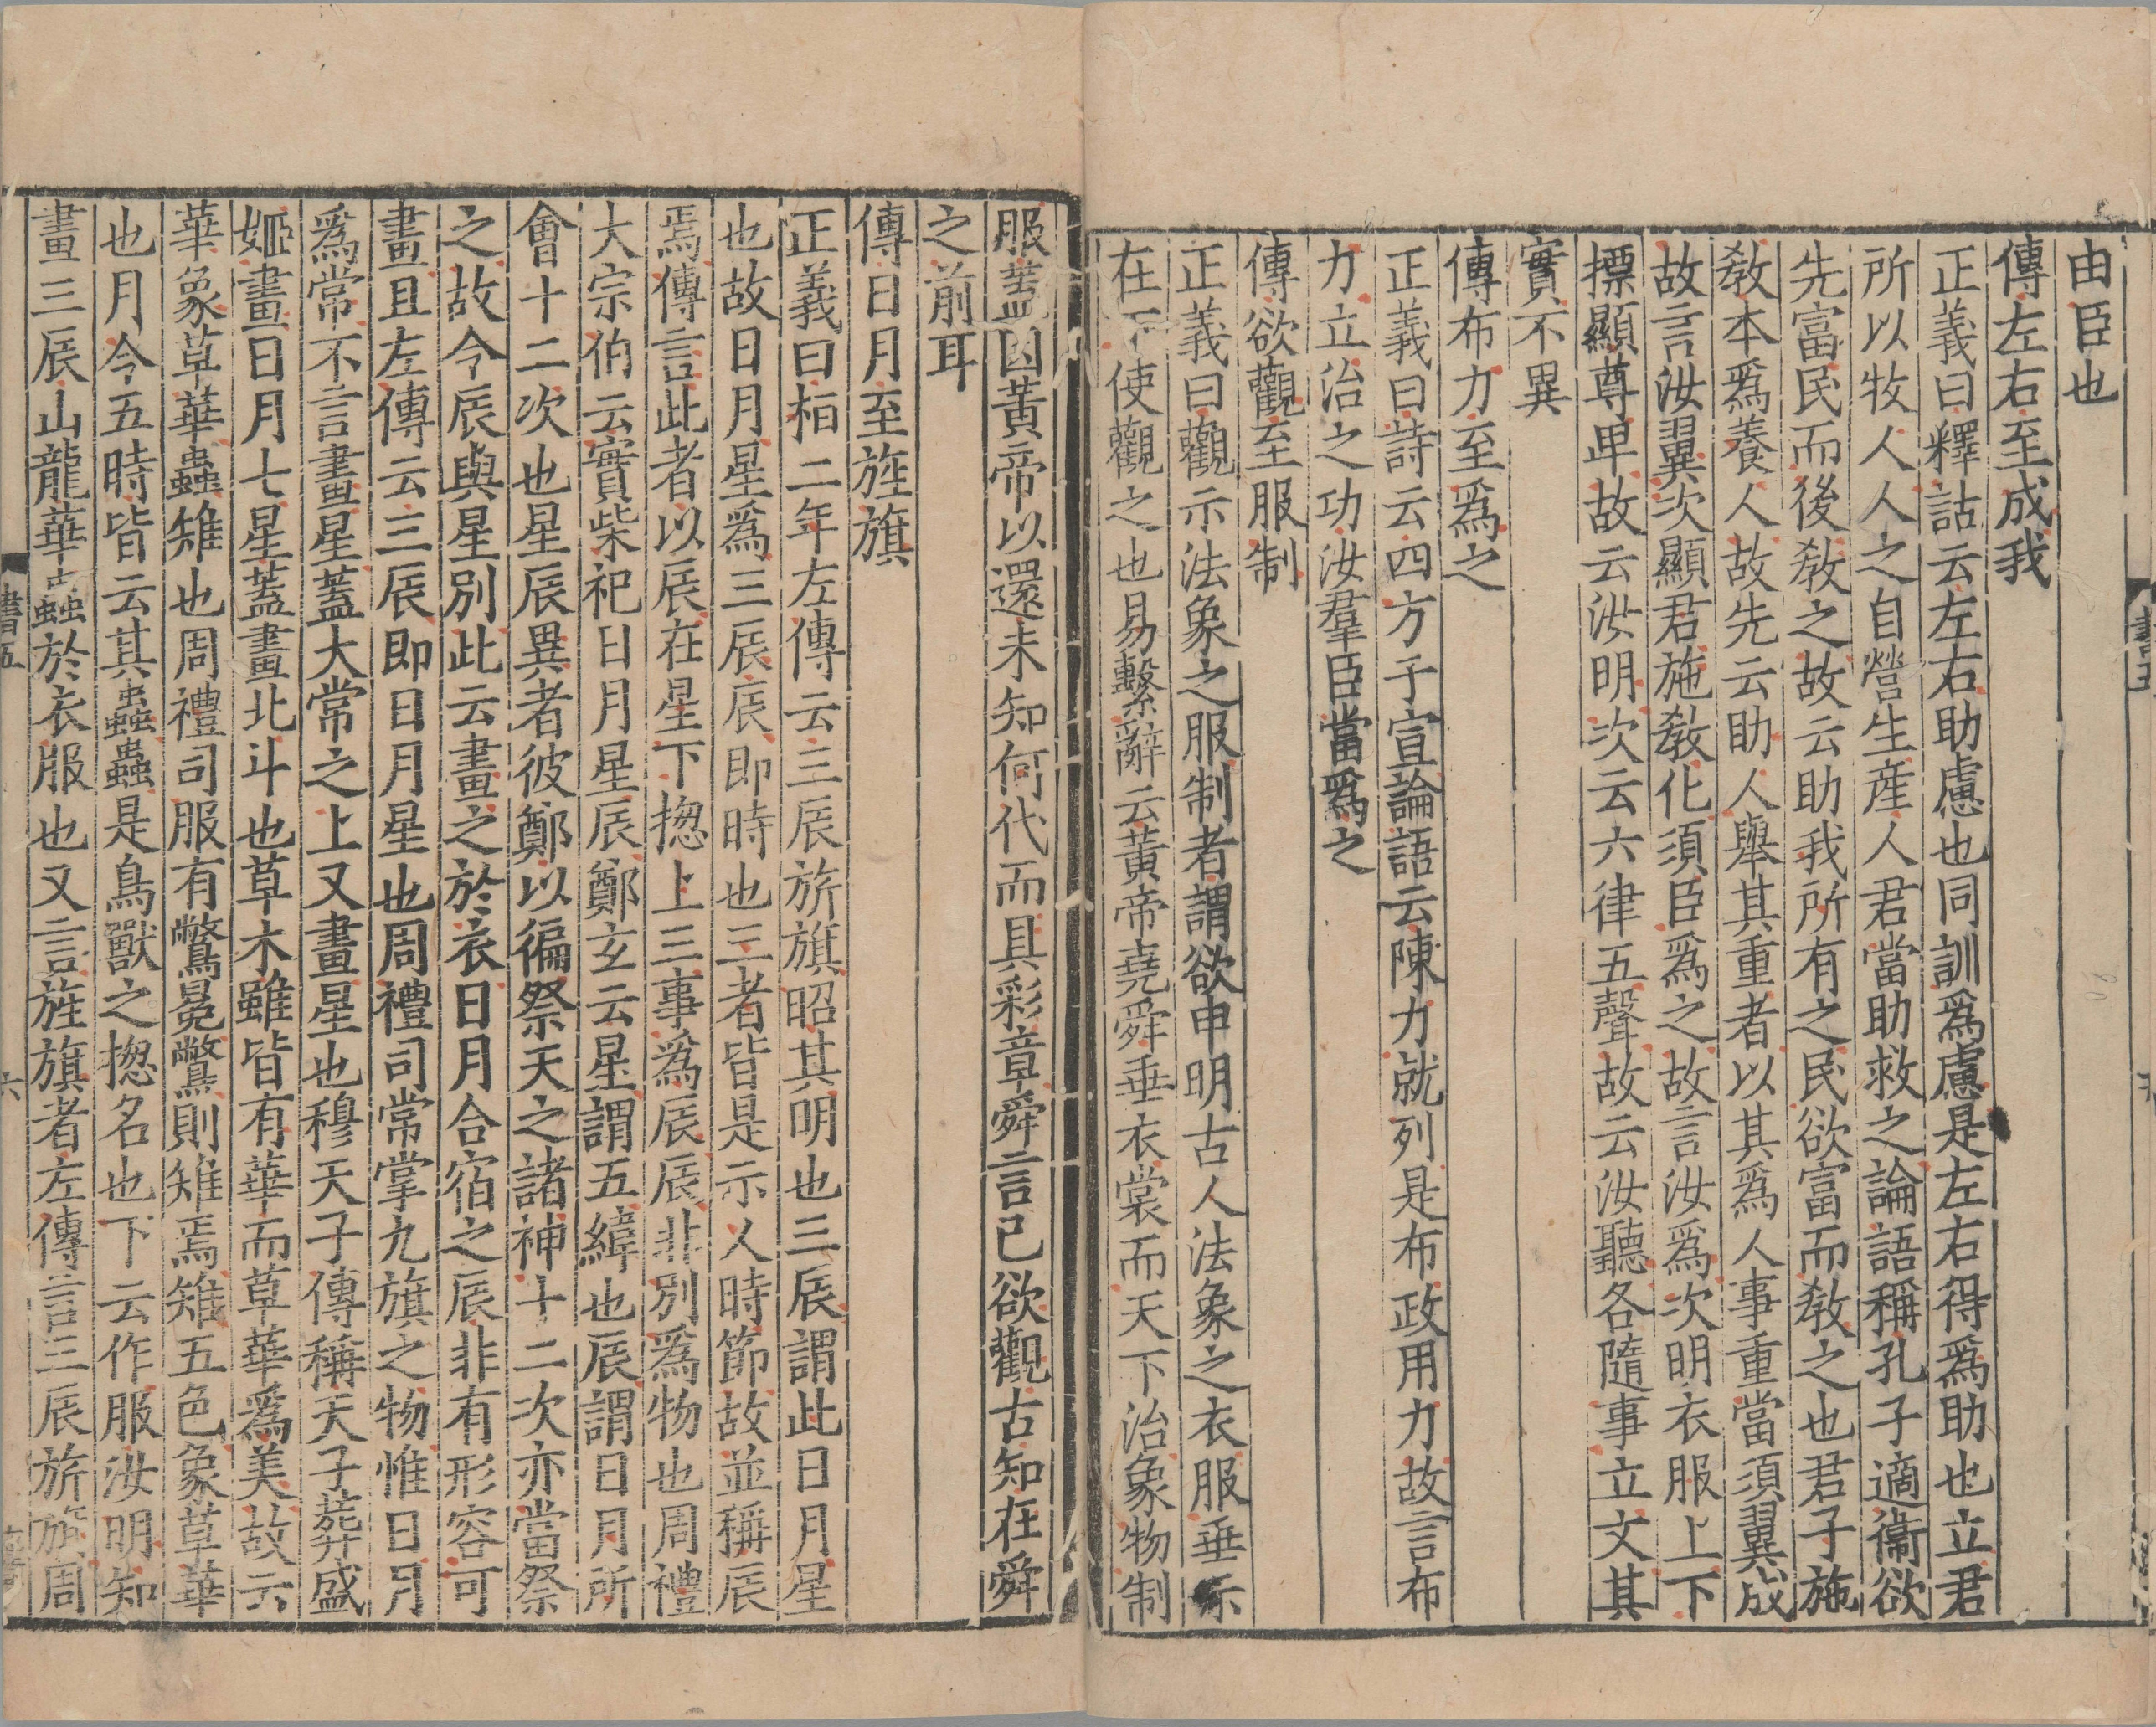 由臣也
傳左右至成我
正義曰釋詁云左右助慮也同訓爲慮是左右得爲助也立君
所以牧人人之自營生産人君當助救之論語稱孔子適衞欲
先富民而後敎之故云助我所有之民欲富而敎之也君子施
敎本爲養人故先云助人舉其重者以其爲人事重當須翼成
故言汝翼次顯君施敎化須臣爲之故言汝爲次明衣服上下
摽顯尊卑故云汝明次云六律五聲故云汝聽各隨事立文其
實不異
傳布力至爲之
正義曰詩云四方于宣論語云陳力就列是布政用力故言布
力立治之功汝羣臣當爲之
傳欲觀至服制
正義曰觀示法象之服制者謂欲申明古人法象之衣服垂示
在下使觀之也易繫辭云黃帝堯舜垂衣裳而天下治象物制
服蓋因黃帝以還未知何代而具彩章舜言己欲觀古知在舜
之前耳
傳日月至旌旗
正義曰桓二年左傳云三辰旂旗昭其明也三辰謂此日月星
也故日月星爲三辰辰即時也三者皆是示人時節故並稱辰
焉傳言此者以辰在星下揔上三事爲辰辰非別爲物也周禮
大宗伯云實柴祀日月星辰鄭玄云星謂五緯也辰謂日月所
會十二次也星辰異者彼鄭以徧祭天之諸神十二次亦當祭
之故令辰與星別此云畫之於衣日月合宿之辰非有形容可
畫且左傳云三辰即日月星也周禮司常掌九旗之物惟日月
爲常不言畫星蓋大常之上又畫星也穆天子傳稱天子葬盛
姬畫日月七星蓋畫北斗也草木雖皆有華而草華爲美故云
華象草華蟲雉也周禮司服有鷩冕鷩則雉焉雉五色象草華
也月令五時皆云其蟲蟲是鳥獸之揔名也下云作服汝明知
畫三辰山龍華蟲於衣服也又言旌旗者左傳言三辰旂旗周
書五
六